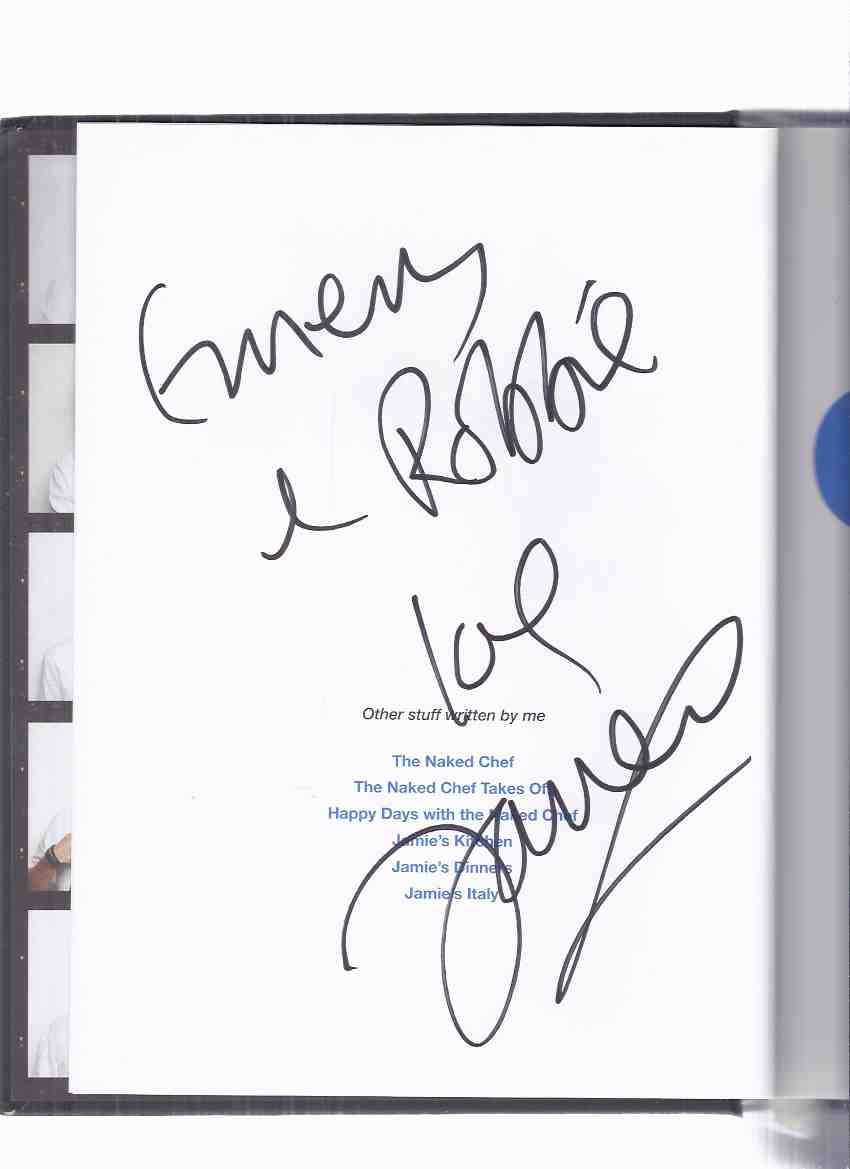 Emery
& Robbie
love
Other stuff written by me
The Naked Chef
The Naked Chef Takes Off
Happy Days with the Naked Chef
Jamie's Kitchen
Jamie's Dinners
Jamie's Italy
Jamie O